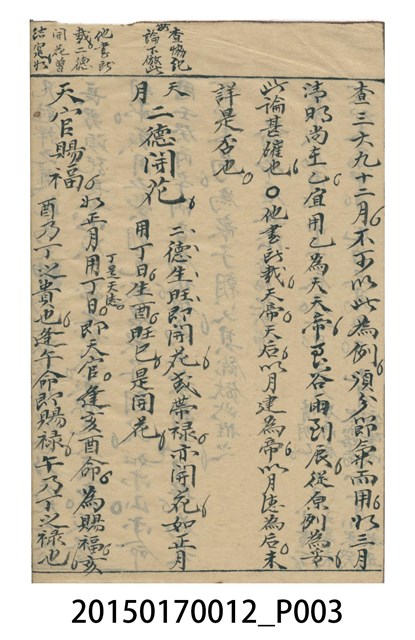 查三六九十二月不少以此為例須分節氣而用如三月
清明尚主乙宜用乙為天帝至谷雨到辰從原列為妥
此論甚確也〇他書所載天帝天后以月建為帝以月德為后未
詳是否也
天月二德開花 二德生旺即開花或帶禄亦開花如正月
用丁日生酉旺巳是開花
天官賜福 如正月用丁日丁是天德即天官逢亥酉命為賜福亥
酉乃丁之貴也逢午命即賜禄午乃丁之禄也
查協紀
論不然此
他書所
載二德
開花曾
20150170012_P003